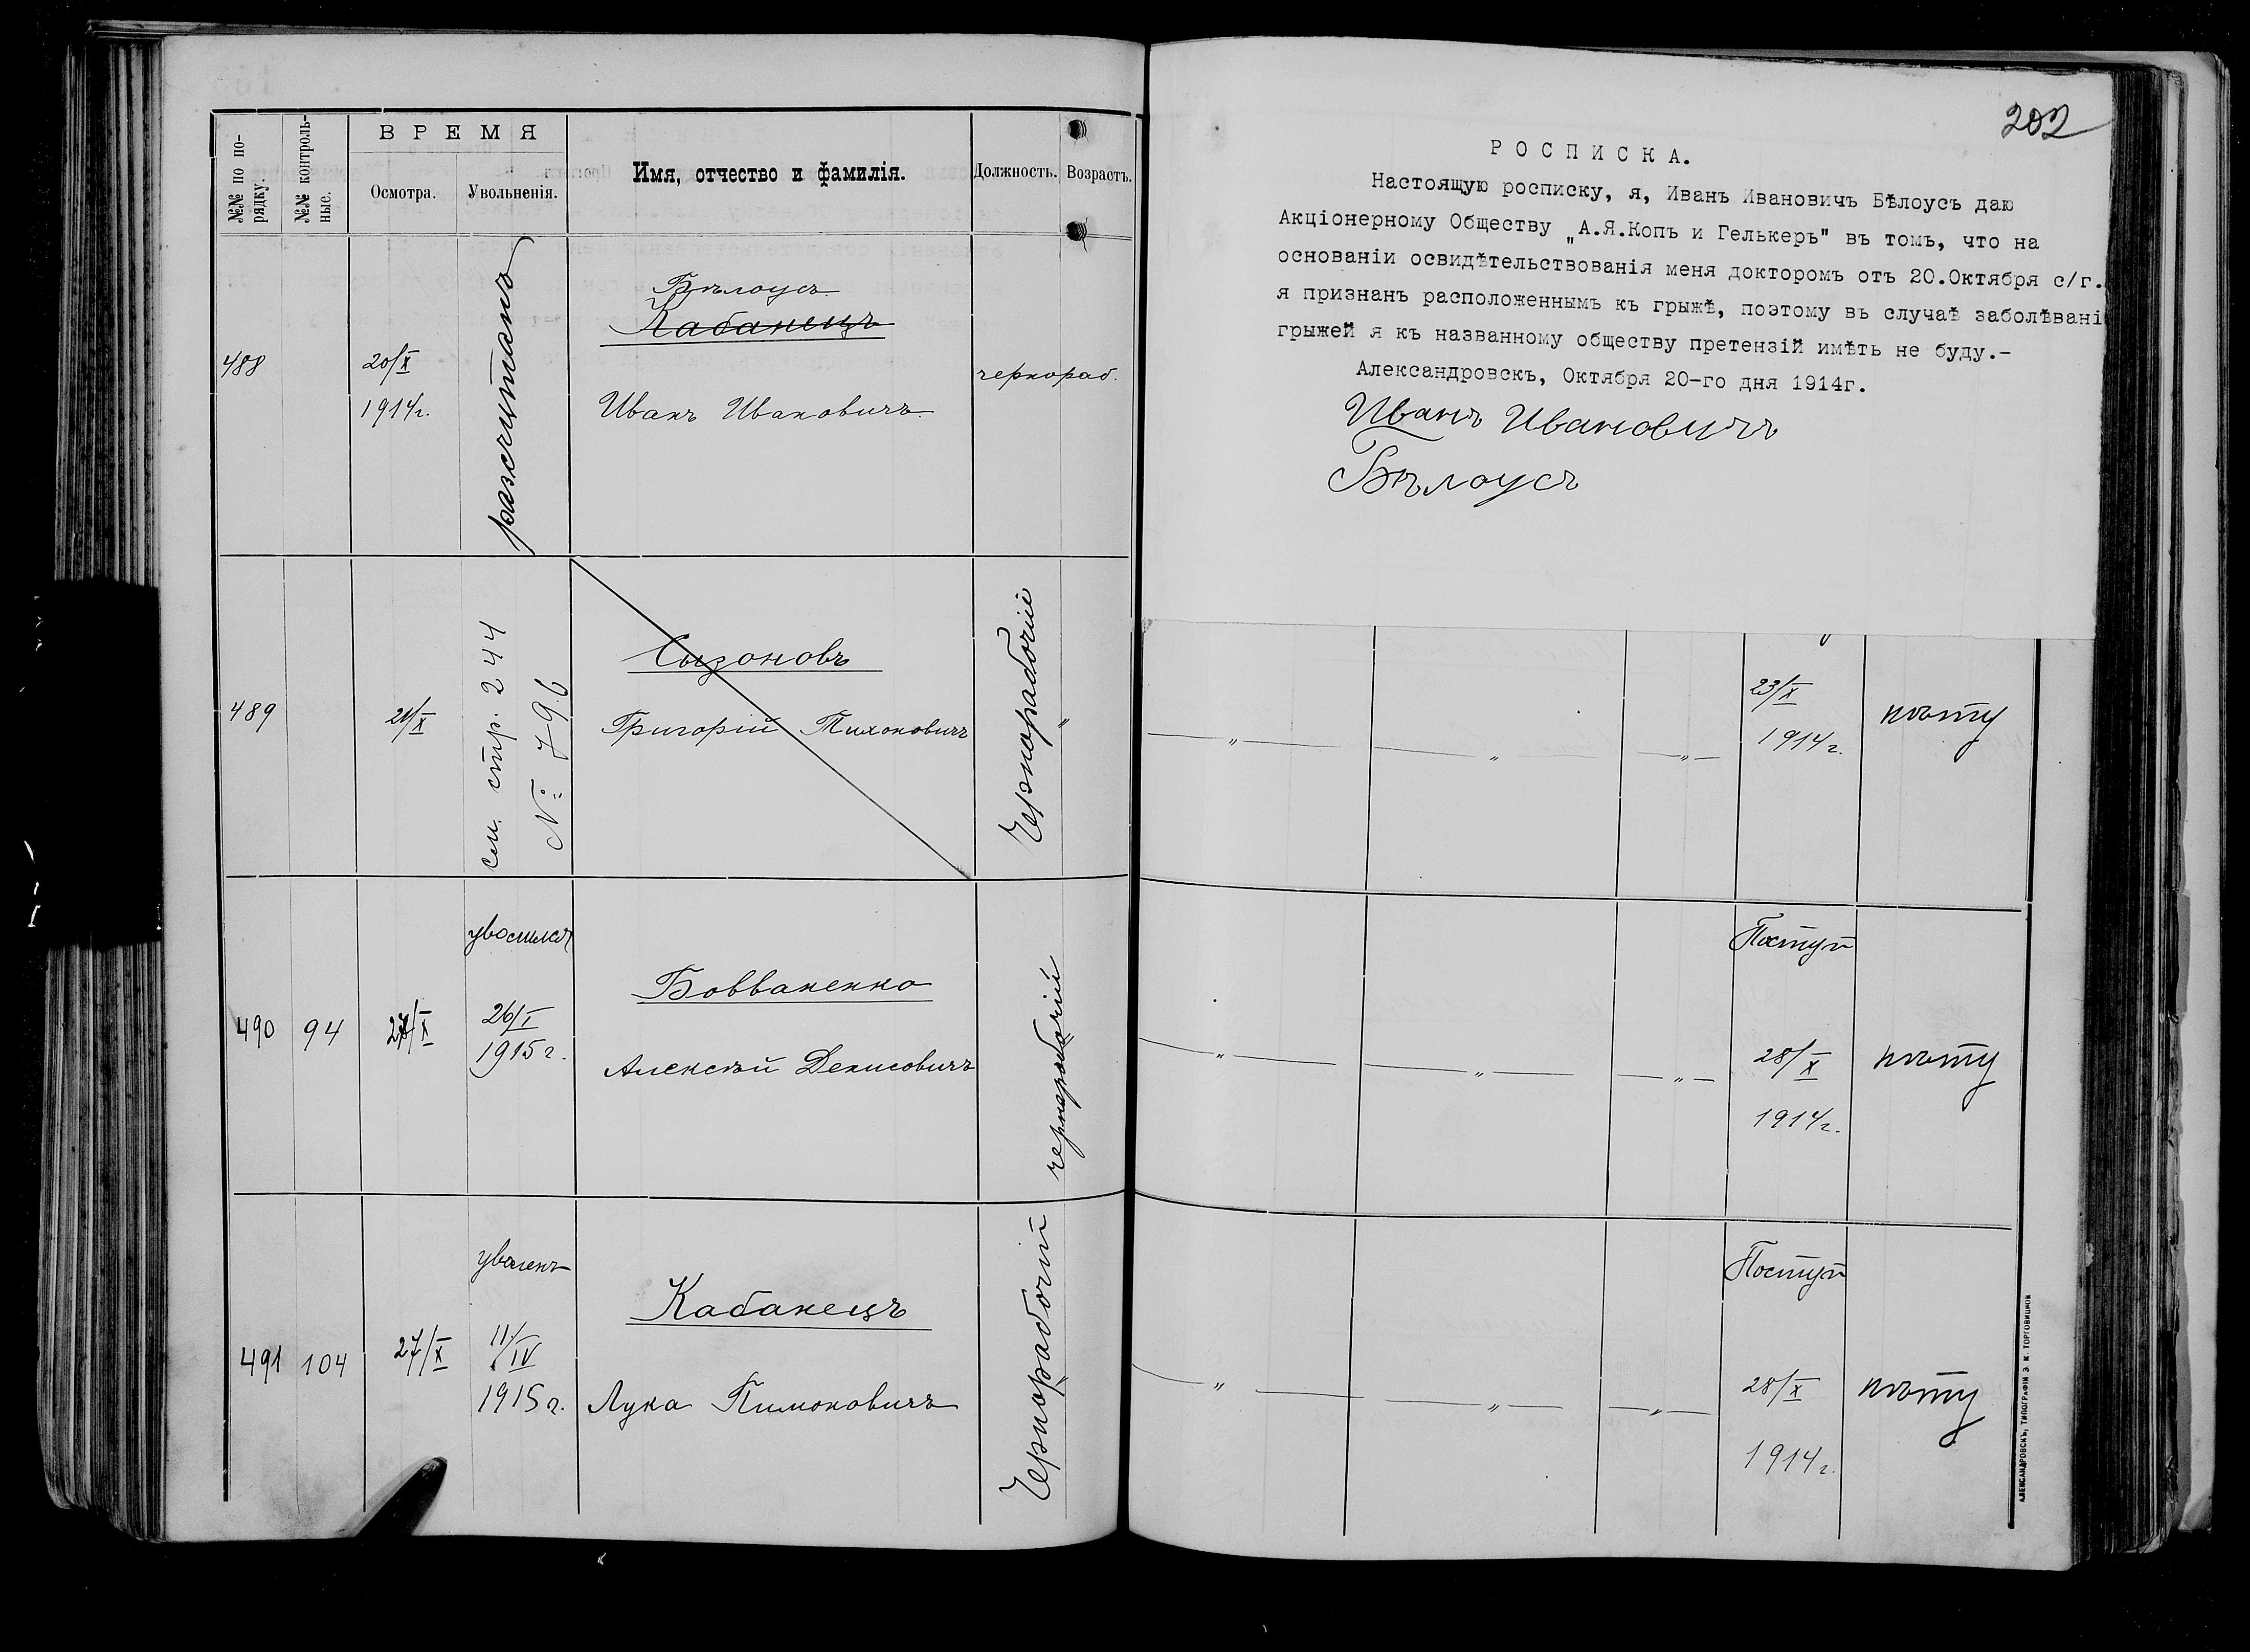 №№ по по-
рядку.
№№ контроль-
ные.
ВРЕМЯ
Осмотра.
Увольненія.
Имя, отчество и фамилія.
Должность.
Возрастъ.
488
20/X
1914г.
разсчитанъ
Бѣлоусъ
Кабанецъ
Иванъ Ивановичъ
чернораб.
489
21/X
см. стр. 244
№ 796
Сызоновъ
Григорій Тихоновичъ
Чернорабочій
"
490
94
27/X
уволился
26/I
1915г.
Бовваненко
Алексѣй Денисовичъ
чернорабочій
491
104
27/X
уволенъ
11/IV
1915г.
Кабанецъ
Лука Пимоновичъ
Чернорабочій
"
202
РОСПИСКА.
Настоящую росписку, я, Иванъ Ивановичъ Бѣлоусъ даю
Акціонерному Обществу „А.Я.Копъ и Гелькеръ" въ томъ, что на
основаніи освидѣтельствованія меня докторомъ отъ 20.Октября с/г.
я признанъ расположеннымъ къ грыжѣ, поэтому вь случаѣ заболѣвані
грыжей я къ названному обществу претензій имѣть не буду.-
Александровскъ, Октября 20-го дня 1914г.
Иванъ Ивановичъ
Бѣлоусъ
— " — — " — — " —
23/X
1914г.
нѣту
— " — — " — — " —
Поступ
28/X
1914г.
нѣту
— " — — " — — " —
Поступ
28/X
1914г.
нѣту
АЛЕКСАНДРОВСКЪ, ТИПОГРАФІЯ Э. М. ТОРГОВИЦКОЙ